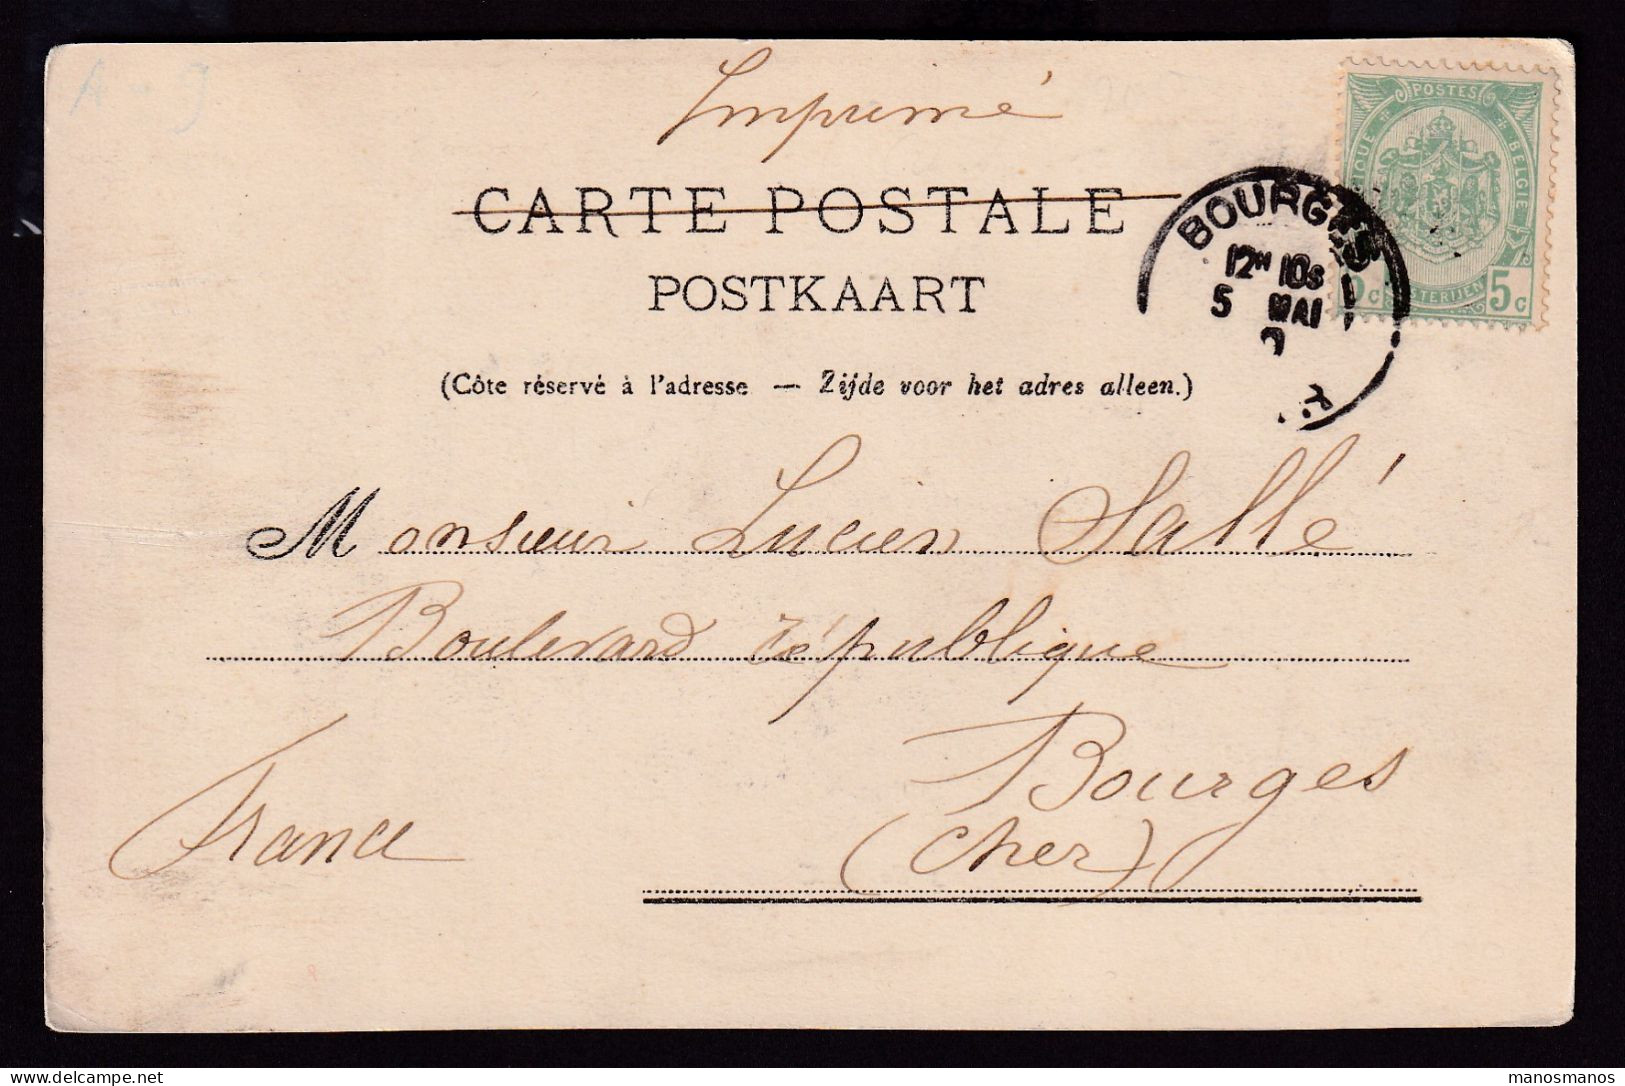 A - J
Imprimé
CARTE POSTALE
POSTKAART
(Côte réservé à l'adresse — Zijde voor het adres alleen.)
POSTES
BELGIE
5c
BOURGES
12H 10S
5 MAI
Monsieur Lucien Sallé
Boulevard République
Bourges
(Cher)
France
manosmanos